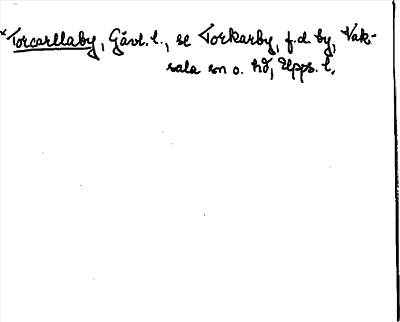 *Torcarllaby, Gävl. l., se Torkarby, f.d. by, Vak-
sala sn o. hd, Upps. l.